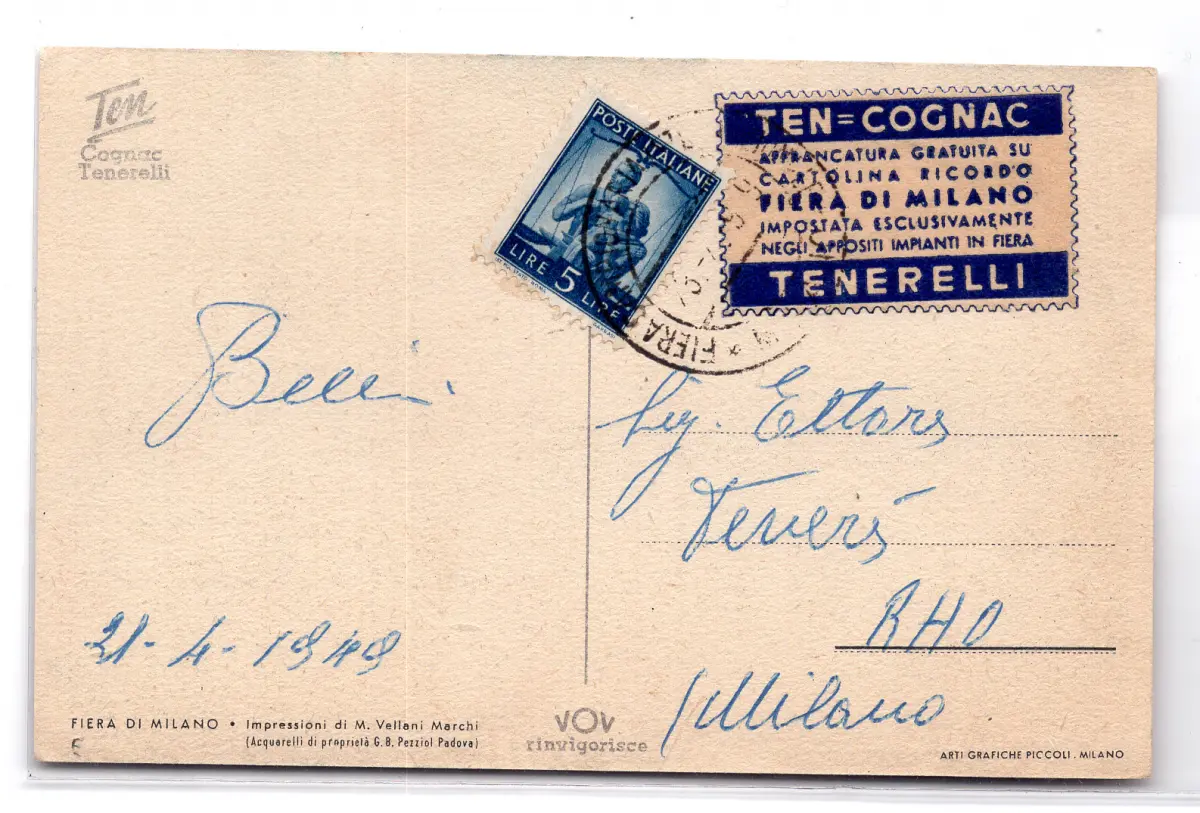 Ten
Cognac
Tenerelli
POSTE ITALIANE
LIRE 5 LIRE
TEN=COGNAC
AFFRANCATURA GRATUITA SU
CARTOLINA RICORDO
FIERA DI MILANO
IMPOSTATA ESCLUSIVAMENTE
NEGLI APPOSITI IMPIANTI IN FIERA
TENERELLI
FIERA
Sig. Ettore
RHO
(Milano
21-4-1949
FIERA DI MILANO • Impressioni di M. Vellani Marchi
(Acquarelli di proprietà G.B. Pezziol Padova)
VOV
rinvigorisce
ARTI GRAFICHE PICCOLI. MILANO